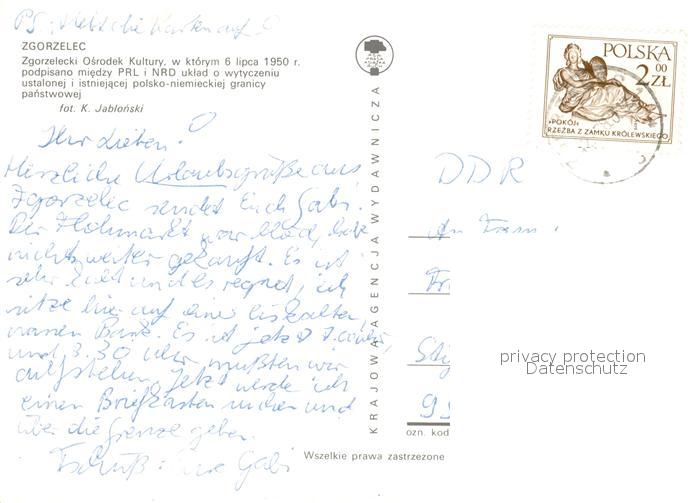 PS: Hebt die Karten auf!
ZGORZELEC
Zgorzelecki Ośrodek Kultury, w którym 6 lipca 1950 r.
podpisano między PRL i NRD układ o wytyczeniu
ustalonej i istniejącej polsko-niemieckiej granicy
państwowej
fot. K. Jabłoński
Ihr Lieben!
Herzliche Urlaubsgrüße aus
Zgorzelic sendet Euch Gabi.
Der Flohmarkt war blöd, habe
nichts weiter gekauft. Es ist
sehr kalt und es regnet, ich
sitze hier auf einer eiskalten,
nassen Bank. Es ist jetzt 7.00 Uhr,
und 3.30 Uhr mußten wir
aufstehen. Jetzt werde ich
einen Briefkasten suchen und
über die Grenze gehen.
Tschüß: Eure Gabi
KRAJOWA AGENCJA WYDAWNICZA
POLSKA
2 00 ZŁ
«POKÓJ»
RZEŹBA Z ZAMKU KRÓLEWSKIEGO
DDR
An Fam.
privacy protection
Datenschutz
ozn. kod
Wszelkie prawa zastrzeżone